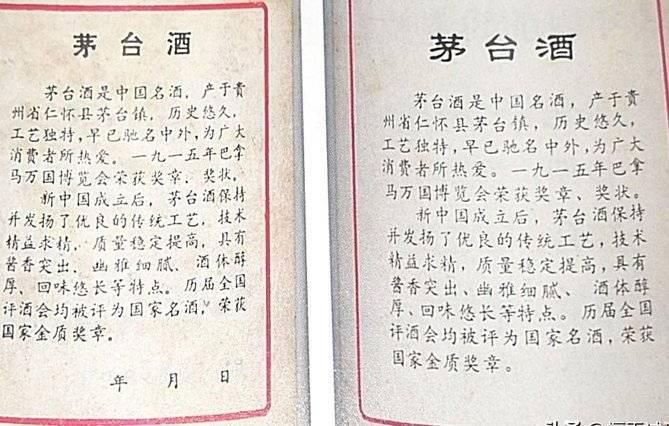 茅台酒
茅台酒是中国名酒，产于贵
州省仁怀县茅台镇，历史悠久，
工艺独特，早已驰名中外，为广大
消费者所热爱。一九一五年巴拿
马万国博览会荣获奖章、奖状。
新中国成立后，茅台酒保持
并发扬了优良的传统工艺，技术
精益求精，质量稳定提高，具有
酱香突出、幽雅细腻、酒体醇
厚、回味悠长等特点。历届全国
评酒会均被评为国家名酒，荣获
国家金质奖章。
年 月 日
茅台酒
茅台酒是中国名酒，产于贵
州省仁怀县茅台镇，历史悠久，
工艺独特，早已驰名中外，为广大
消费者所热爱。一九一五年巴拿
马万国博览会荣获奖章、奖状。
新中国成立后，茅台酒保持
并发扬了优良的传统工艺，技术
精益求精，质量稳定提高，具有
酱香突出、幽雅细腻、酒体醇
厚、回味悠长等特点。历届全国
评酒会均被评为国家名酒，荣获
国家金质奖章。